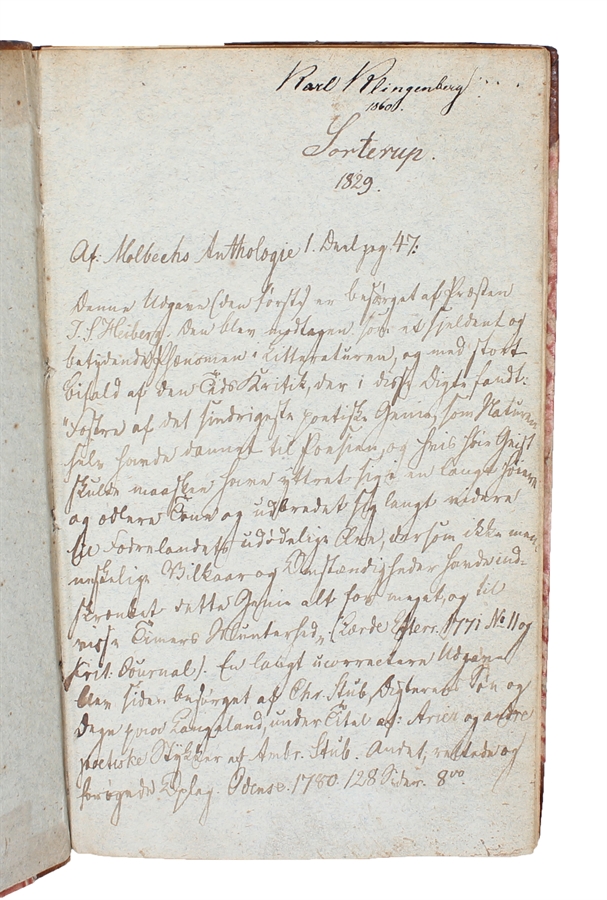 Karl Klingenberg
1860.
Sorterup.
1829.
Af: Molbechs Anthologie 1. Deel pag. 47:
Denne Udgave (den første) er besørget af Præsten
T. S. Heiberg. Den blev modtagen som et sjeldent og
betydende Phænomen i Litteraturen, og med stort
bifald af den Tids Kritik, der i disse Digte fandt:
"Fostre af det sindrigeste poetiske Genie, som Naturen
selv havde dannet til Poesien, og hvis høie Geist
skulde maaskee have yttret sig i en langt høiere
og ædlere Tone og udbredet sig langt videre
til Fædrelandets udødelige Ære, dersom ikke men-
neskelige Vilkaar og Omstændigheder havde ind-
skrænket dette Genie alt for meget, og til
visse Timers Munterhed," (Lærde Efterr. 1771 № 11 og
Krit. Journal). En langt ucorrectere Udgave
blev siden besørget af Chr. Stub, Digterens Søn og
Degn paa Langeland, under Titel af: Arier og andre
poetiske Stykker af Ambr. Stub. Andet, rettede og
forøgede Oplag. Odense. 1780. 128 Sider. 8vo.